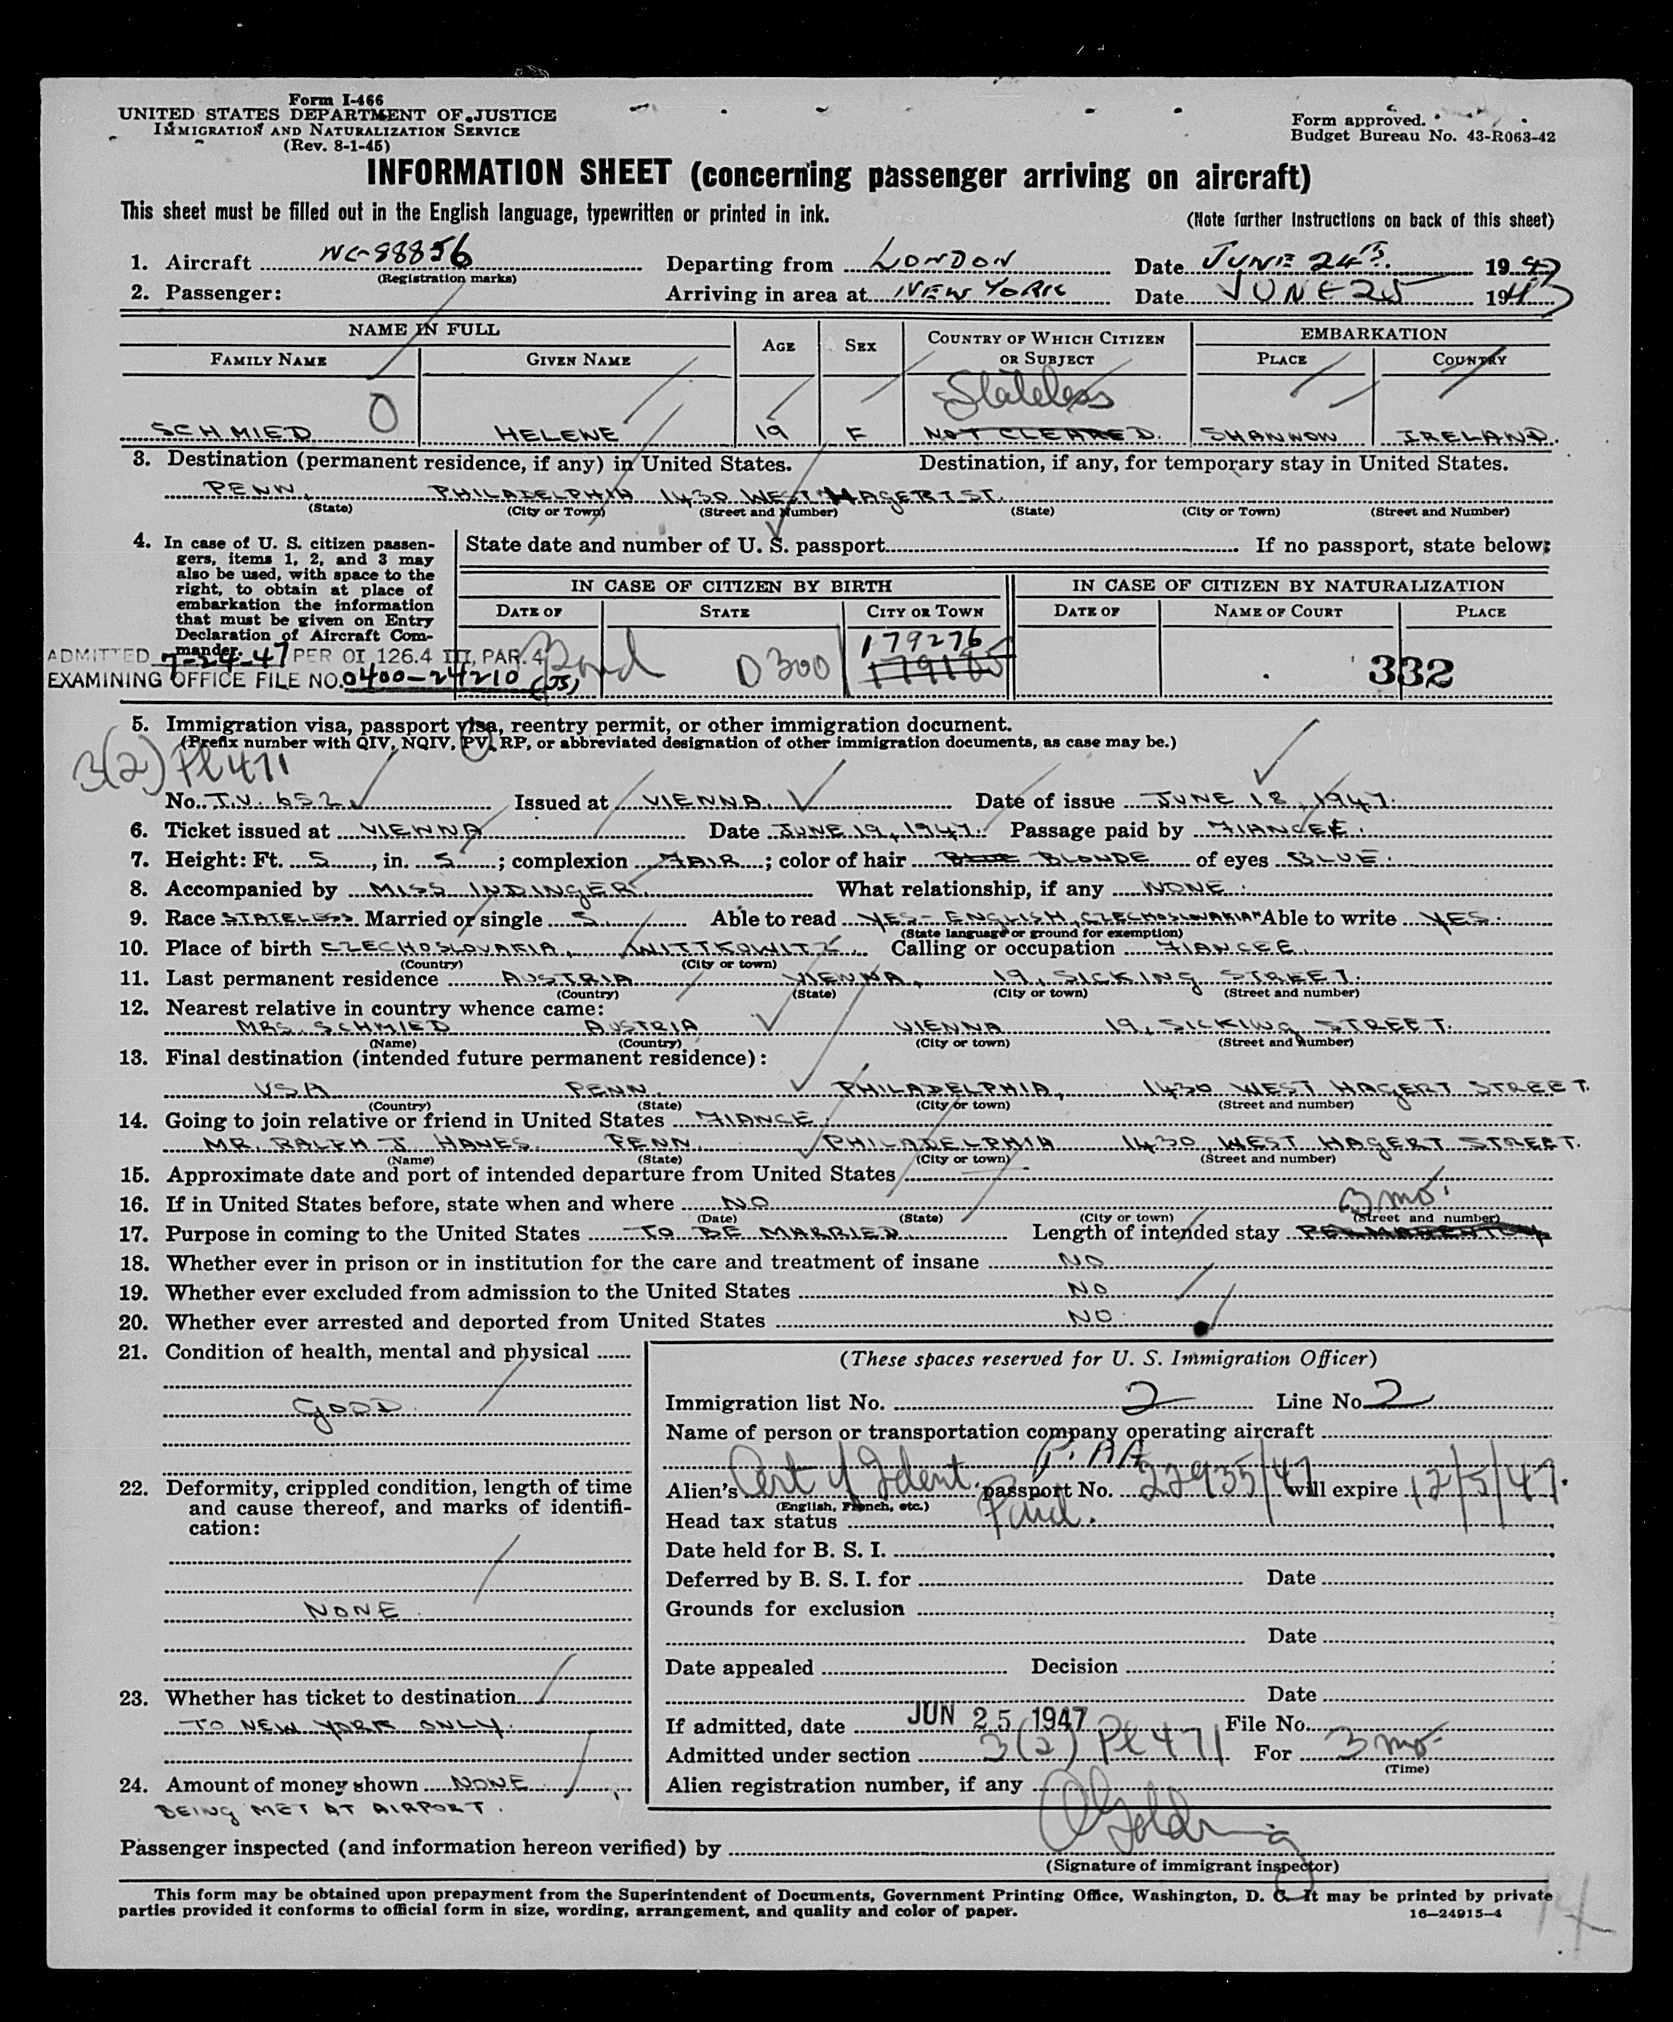 Form I-466
UNITED STATES DEPARTMENT OF JUSTICE
IMMIGRATION AND NATURALIZATION SERVICE
(Rev. 8-1-45)
Form approved.
Budget Bureau No. 43-R063-42
INFORMATION SHEET (concerning passenger arriving on aircraft)
This sheet must be filled out in the English language, typewritten or printed in ink.
(Note further instructions on back of this sheet)
1. Aircraft NC-88856 Departing from LONDON Date JUNE 24th. 1947
(Registration marks)
2. Passenger: Arriving in area at NEW YORK Date JUNE 25 1947
NAME IN FULL AGE SEX COUNTRY OF WHICH CITIZEN OR SUBJECT EMBARKATION
FAMILY NAME GIVEN NAME PLACE COUNTRY
Stateless
SCHMIED O HELENE 19 F NOT CLEARED. SHANNON IRELAND.
3. Destination (permanent residence, if any) in United States. Destination, if any, for temporary stay in United States.
PENN, PHILADELPHIA 1430 WEST HAGERT ST.
(State) (City or Town) (Street and Number) (State) (City or Town) (Street and Number)
4. In case of U. S. citizen passengers, items 1, 2, and 3 may also be used, with space to the right, to obtain at place of embarkation the information that must be given on Entry Declaration of Aircraft Commander.
State date and number of U. S. passport If no passport, state below:
IN CASE OF CITIZEN BY BIRTH IN CASE OF CITIZEN BY NATURALIZATION
DATE OF STATE CITY OR TOWN DATE OF NAME OF COURT PLACE
179276
Bond D300 179185 332
ADMITTED 7-24-47 PER OI 126.4 III, PAR. 4
EXAMINING OFFICE FILE NO. 0400-24210 (JS)
5. Immigration visa, passport visa, reentry permit, or other immigration document.
(Prefix number with QIV, NQIV, PV, RP, or abbreviated designation of other immigration documents, as case may be.)
3(2) Pl 471
No. I.V. 652 Issued at VIENNA. Date of issue JUNE 18, 1947.
6. Ticket issued at VIENNA Date JUNE 19, 1947. Passage paid by FIANCEE.
7. Height: Ft. 5, in. 5; complexion FAIR; color of hair BLUE BLONDE of eyes BLUE.
8. Accompanied by MISS INDINGER. What relationship, if any NONE.
9. Race STATELESS Married or single S. Able to read YES - ENGLISH, CZECHOSLOVAKIAN Able to write YES.
(State language or ground for exemption)
10. Place of birth CZECHOSLOVAKIA, WITTKOWITZ. Calling or occupation FIANCEE.
(Country) (City or town)
11. Last permanent residence AUSTRIA VIENNA, 19, SICKING STREET.
(Country) (State) (City or town) (Street and number)
12. Nearest relative in country whence came:
MRS. SCHMIED AUSTRIA VIENNA 19, SICKING STREET.
(Name) (Country) (City or town) (Street and number)
13. Final destination (intended future permanent residence):
USA PENN. PHILADELPHIA, 1430 WEST HAGERT STREET.
(Country) (State) (City or town) (Street and number)
14. Going to join relative or friend in United States FIANCE:
MR. RALPH J HANES. PENN. PHILADELPHIA 1430, WEST HAGERT STREET.
(Name) (State) (City or town) (Street and number)
15. Approximate date and port of intended departure from United States
16. If in United States before, state when and where NO 3 mo.
(Date) (State) (City or town) (Street and number)
17. Purpose in coming to the United States TO BE MARRIED. Length of intended stay PERMANENTLY
18. Whether ever in prison or in institution for the care and treatment of insane NO
19. Whether ever excluded from admission to the United States NO
20. Whether ever arrested and deported from United States NO.
21. Condition of health, mental and physical
GOOD.
22. Deformity, crippled condition, length of time and cause thereof, and marks of identification:
NONE.
23. Whether has ticket to destination
TO NEW YORK ONLY.
24. Amount of money shown NONE.
BEING MET AT AIRPORT.
(These spaces reserved for U. S. Immigration Officer)
Immigration list No. 2 Line No. 2
Name of person or transportation company operating aircraft
P.AA
Alien's Cert of Ident. passport No. 22935/47 will expire 12/5/47.
(English, French, etc.)
Head tax status Paid.
Date held for B. S. I.
Deferred by B. S. I. for Date
Grounds for exclusion
Date
Date appealed Decision
Date
If admitted, date JUN 25 1947 File No.
Admitted under section 3(2) Pl 471 For 3 mo.
(Time)
Alien registration number, if any
Passenger inspected (and information hereon verified) by
(Signature of immigrant inspector)
This form may be obtained upon prepayment from the Superintendent of Documents, Government Printing Office, Washington, D. C. It may be printed by private
parties provided it conforms to official form in size, wording, arrangement, and quality and color of paper.
16-24915-4